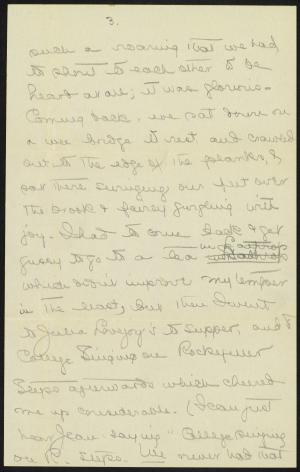 3.
such a roaring that we had
to shout to each other to be
heard at all; it was glorious.
Coming back, we sat down on
a wee bridge to rest, and crawled
out to the edge of the planks, &
sat there swinging our feet over
the brook & fairly gurgling with
joy. I had to come back & get
gussy to go to a tea in Lathrop
which didn't improve my temper
in the least, but then I went
to Julia Lovejoy's to supper, and to
College Singing on Rockefeller
Steps afterwards which cheered
me up considerable. (I can just
hear Jean saying "College Singing
on R. Steps. We never had that